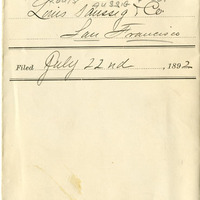 Louis Taussig & Co
San Francisco
Filed July 22nd, 1892